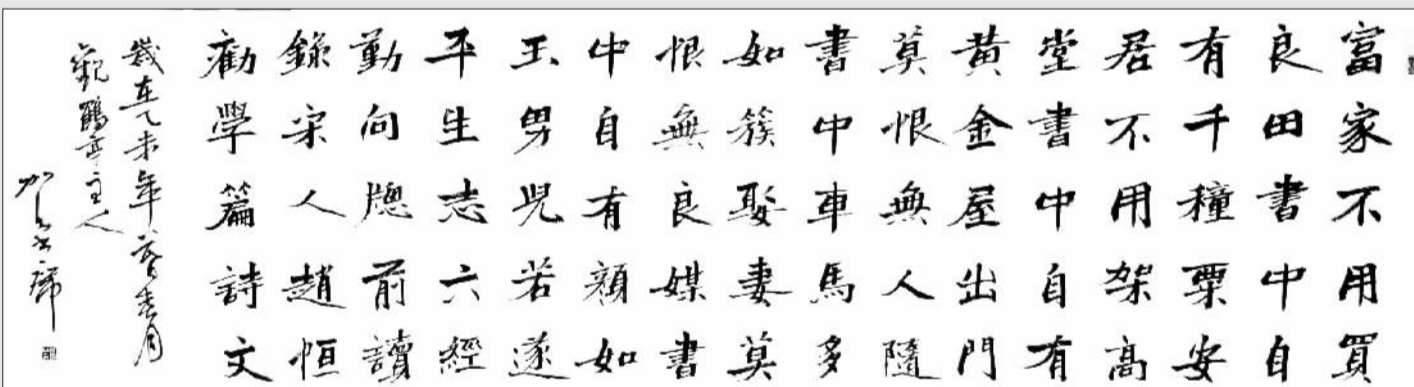 富家不用買
良田書中自
有千種粟安
居不用架高
堂書中自有
黃金屋出門
莫恨無人隨
書中車馬多
如簇娶妻莫
恨無良媒書
中自有顏如
玉男兒若遂
平生志六經
勤向牕前讀
錄宋人趙恒
勸學篇詩文
歲在乙未年
觀鶴亭主人